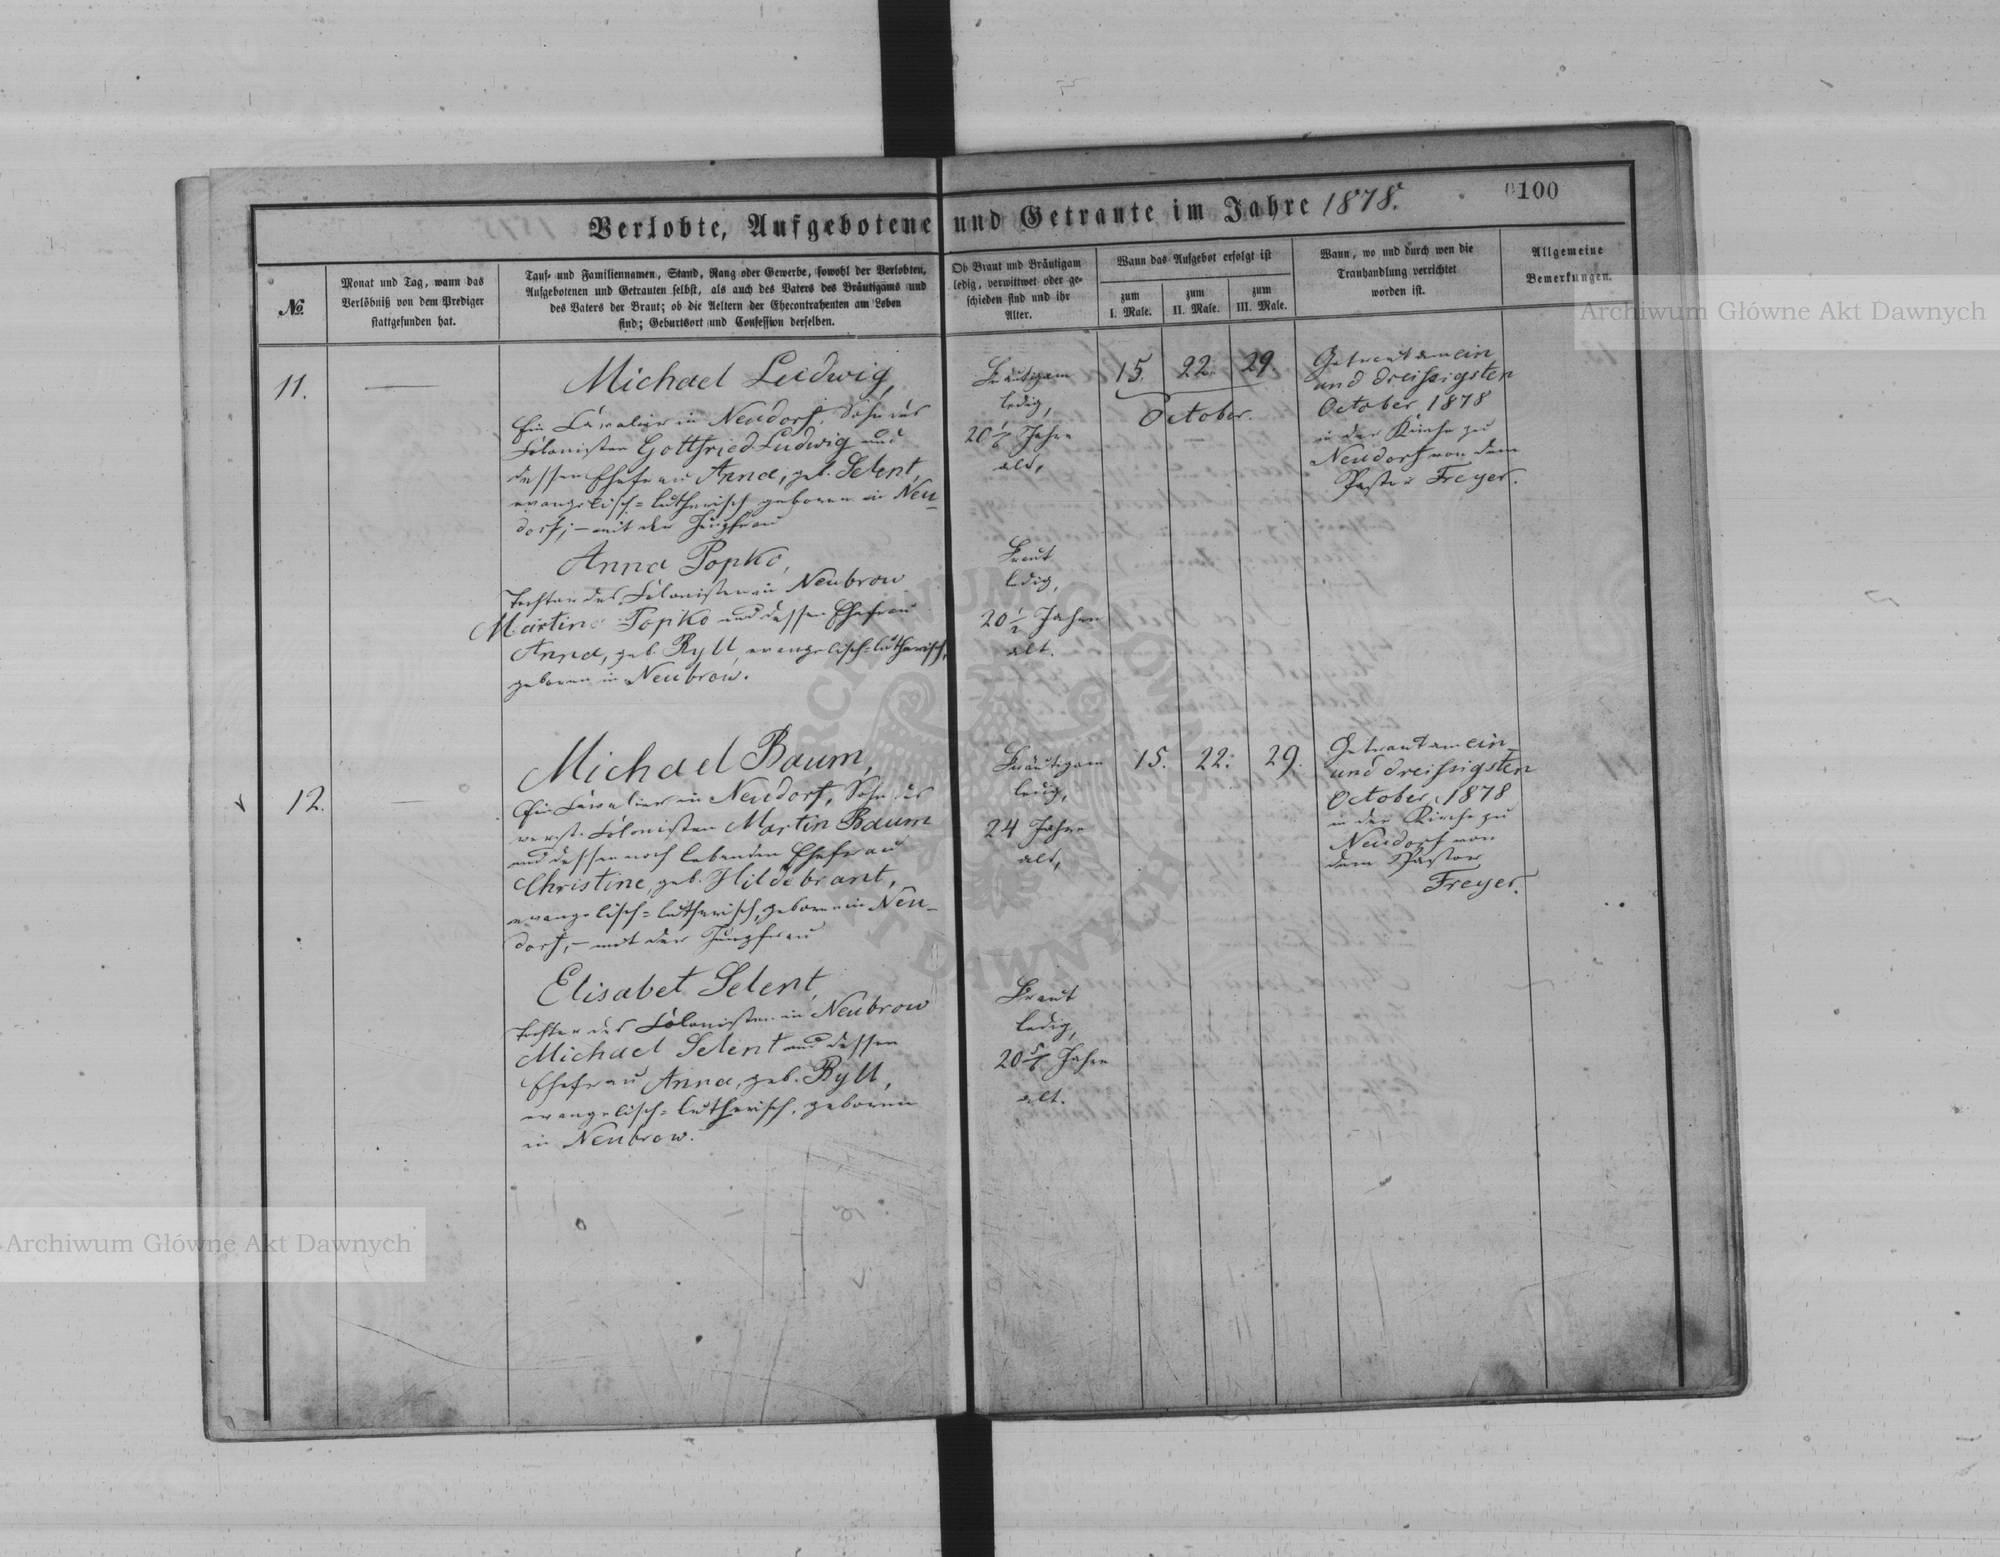 Verlobte, Aufgebotene und Getraute im Jahre 1878.
0100
№
Monat und Tag, wann das
Verlöbniß von dem Prediger
stattgefunden hat.
Tauf- und Familiennamen, Stand, Rang oder Gewerbe, sowohl der Verlobten,
Aufgebotenen und Getrauten selbst, als auch des Vaters des Bräutigams und
des Vaters der Braut; ob die Aeltern der Ehecontrahenten am Leben
sind; Geburtsort und Confession derselben.
Ob Braut und Bräutigam
ledig, verwittwet oder ge-
schieden sind und ihr
Alter.
Wann das Aufgebot erfolgt ist
zum
I. Male.
zum
II. Male.
zum
III. Male.
Wann, wo und durch wen die
Trauhandlung verrichtet
worden ist.
Allgemeine
Bemerkungen.
11.
Michael Ludwig,
Ein Cavalier in Neudorf, Sohn des
Colonisten Gottfried Ludwig und
dessen Ehefrau Anna, geb. Selent,
evangelisch=lutherisch, geboren in Neu-
dorf; – mit der Jungfrau
Anna Popko,
Tochter des Colonisten in Neubrow
Martin Popko und dessen Ehefrau
Anna, geb. Ryll, evangelisch=lutherisch,
geboren in Neubrow.
Bräutigam
ledig,
20 Jahre
alt,
Braut
ledig,
20 1/2 Jahre
alt.
15. 22. 29.
October.
Getraut am ein
und dreissigsten
October 1878
in der Kirche zu
Neudorf von dem
Pastor Freyer.
12.
Michael Baum,
Ein Cavalier in Neudorf, Sohn des
verst. Colonisten Martin Baum
und dessen noch lebenden Ehefrau
Christine, geb. Hildebrant,
evangelisch=lutherisch, geboren in Neu-
dorf, – mit der Jungfrau
Elisabet Selent,
Tochter des Colonisten in Neubrow
Michael Selent und dessen
Ehefrau Anna, geb. Ryll,
evangelisch=lutherisch, geboren
in Neubrow.
Bräutigam
ledig,
24 Jahre
alt,
Braut
ledig,
20 Jahre
alt.
15. 22. 29.
Getraut am ein-
und dreissigsten
October 1878
in der Kirche zu
Neudorf von
dem Pastor
Freyer.
Archiwum Główne Akt Dawnych
Archiwum Główne Akt Dawnych
ARCHIWUM GŁÓWNE AKT DAWNYCH